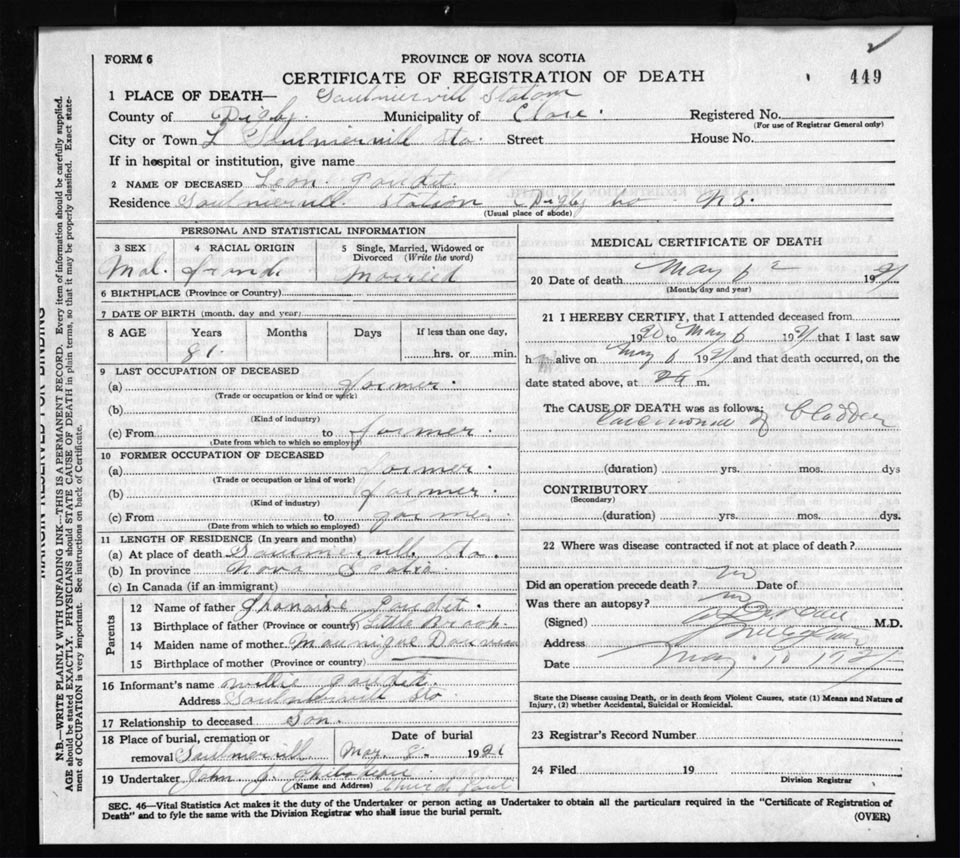 FORM 6
PROVINCE OF NOVA SCOTIA
CERTIFICATE OF REGISTRATION OF DEATH
449
1 PLACE OF DEATH— Saulniervill Station
County of Digby Municipality of Clare. Registered No.
(For use of Registrar General only)
City or Town Saulniervill Sta. Street House No.
If in hospital or institution, give name
2 NAME OF DECEASED Leon
Residence Saulniervill. Station Digby Co. N S.
(Usual place of abode)
PERSONAL AND STATISTICAL INFORMATION
3 SEX 4 RACIAL ORIGIN 5 Single, Married, Widowed or Divorced (Write the word)
Mal. Married
6 BIRTHPLACE (Province or Country)
7 DATE OF BIRTH (month, day and year)
8 AGE Years Months Days If less than one day,
81. hrs. or min.
9 LAST OCCUPATION OF DECEASED
(a) former.
(Trade or occupation or kind or work)
(b)
(Kind of industry)
(c) From to former.
(Date from which to which so employed)
10 FORMER OCCUPATION OF DECEASED
(a) former.
(Trade or occupation or kind of work)
(b) former.
(Kind of industry)
(c) From to
(Date from which to which so employed)
11 LENGTH OF RESIDENCE (In years and months)
(a) At place of death Saulnervill. Sta.
(b) In province Nova Scotia
(c) In Canada (if an immigrant)
Parents
12 Name of father
13 Birthplace of father (Province or country) Little Brook.
14 Maiden name of mother
15 Birthplace of mother (Province or country)
16 Informant's name Willie
Address Saulniervill Sta
17 Relationship to deceased Son.
18 Place of burial, cremation or removal Saulnervill
Date of burial May 8. 1921
19 Undertaker John J. Thibodeau
(Name and Address) Church Point
MEDICAL CERTIFICATE OF DEATH
20 Date of death May 6 19
(Month, day and year)
21 I HEREBY CERTIFY, that I attended deceased from
1920 to May 6 1921 that I last saw
h alive on May 6 1921 and that death occurred, on the
date stated above, at m.
The CAUSE OF DEATH was as follows:
Carcinoma of Bladder
(duration) yrs. mos. dys
CONTRIBUTORY
(Secondary)
(duration) yrs. mos. dys.
22 Where was disease contracted if not at place of death?
Did an operation precede death? no Date of
Was there an autopsy? no
(Signed) M.D.
Address
Date May. 10 1921
State the Disease causing Death, or in death from Violent Causes, state (1) Means and Nature of
Injury, (2) whether Accidental, Suicidal or Homicidal.
23 Registrar's Record Number
24 Filed 19
Division Registrar
SEC. 46—Vital Statistics Act makes it the duty of the Undertaker or person acting as Undertaker to obtain all the particulars required in the "Certificate of Registration of
Death" and to fyle the same with the Division Registrar who shall issue the burial permit.
(OVER)
MARGIN RESERVED FOR BINDING
N.B.—WRITE PLAINLY WITH UNFADING INK—THIS IS A PERMANENT RECORD. Every item of information should be carefully supplied.
AGE should be stated EXACTLY. PHYSICIANS should STATE CAUSE OF DEATH in plain terms, so that it may be properly classified. Exact state-
ment of OCCUPATION is very important. See instructions on back of Certificate.